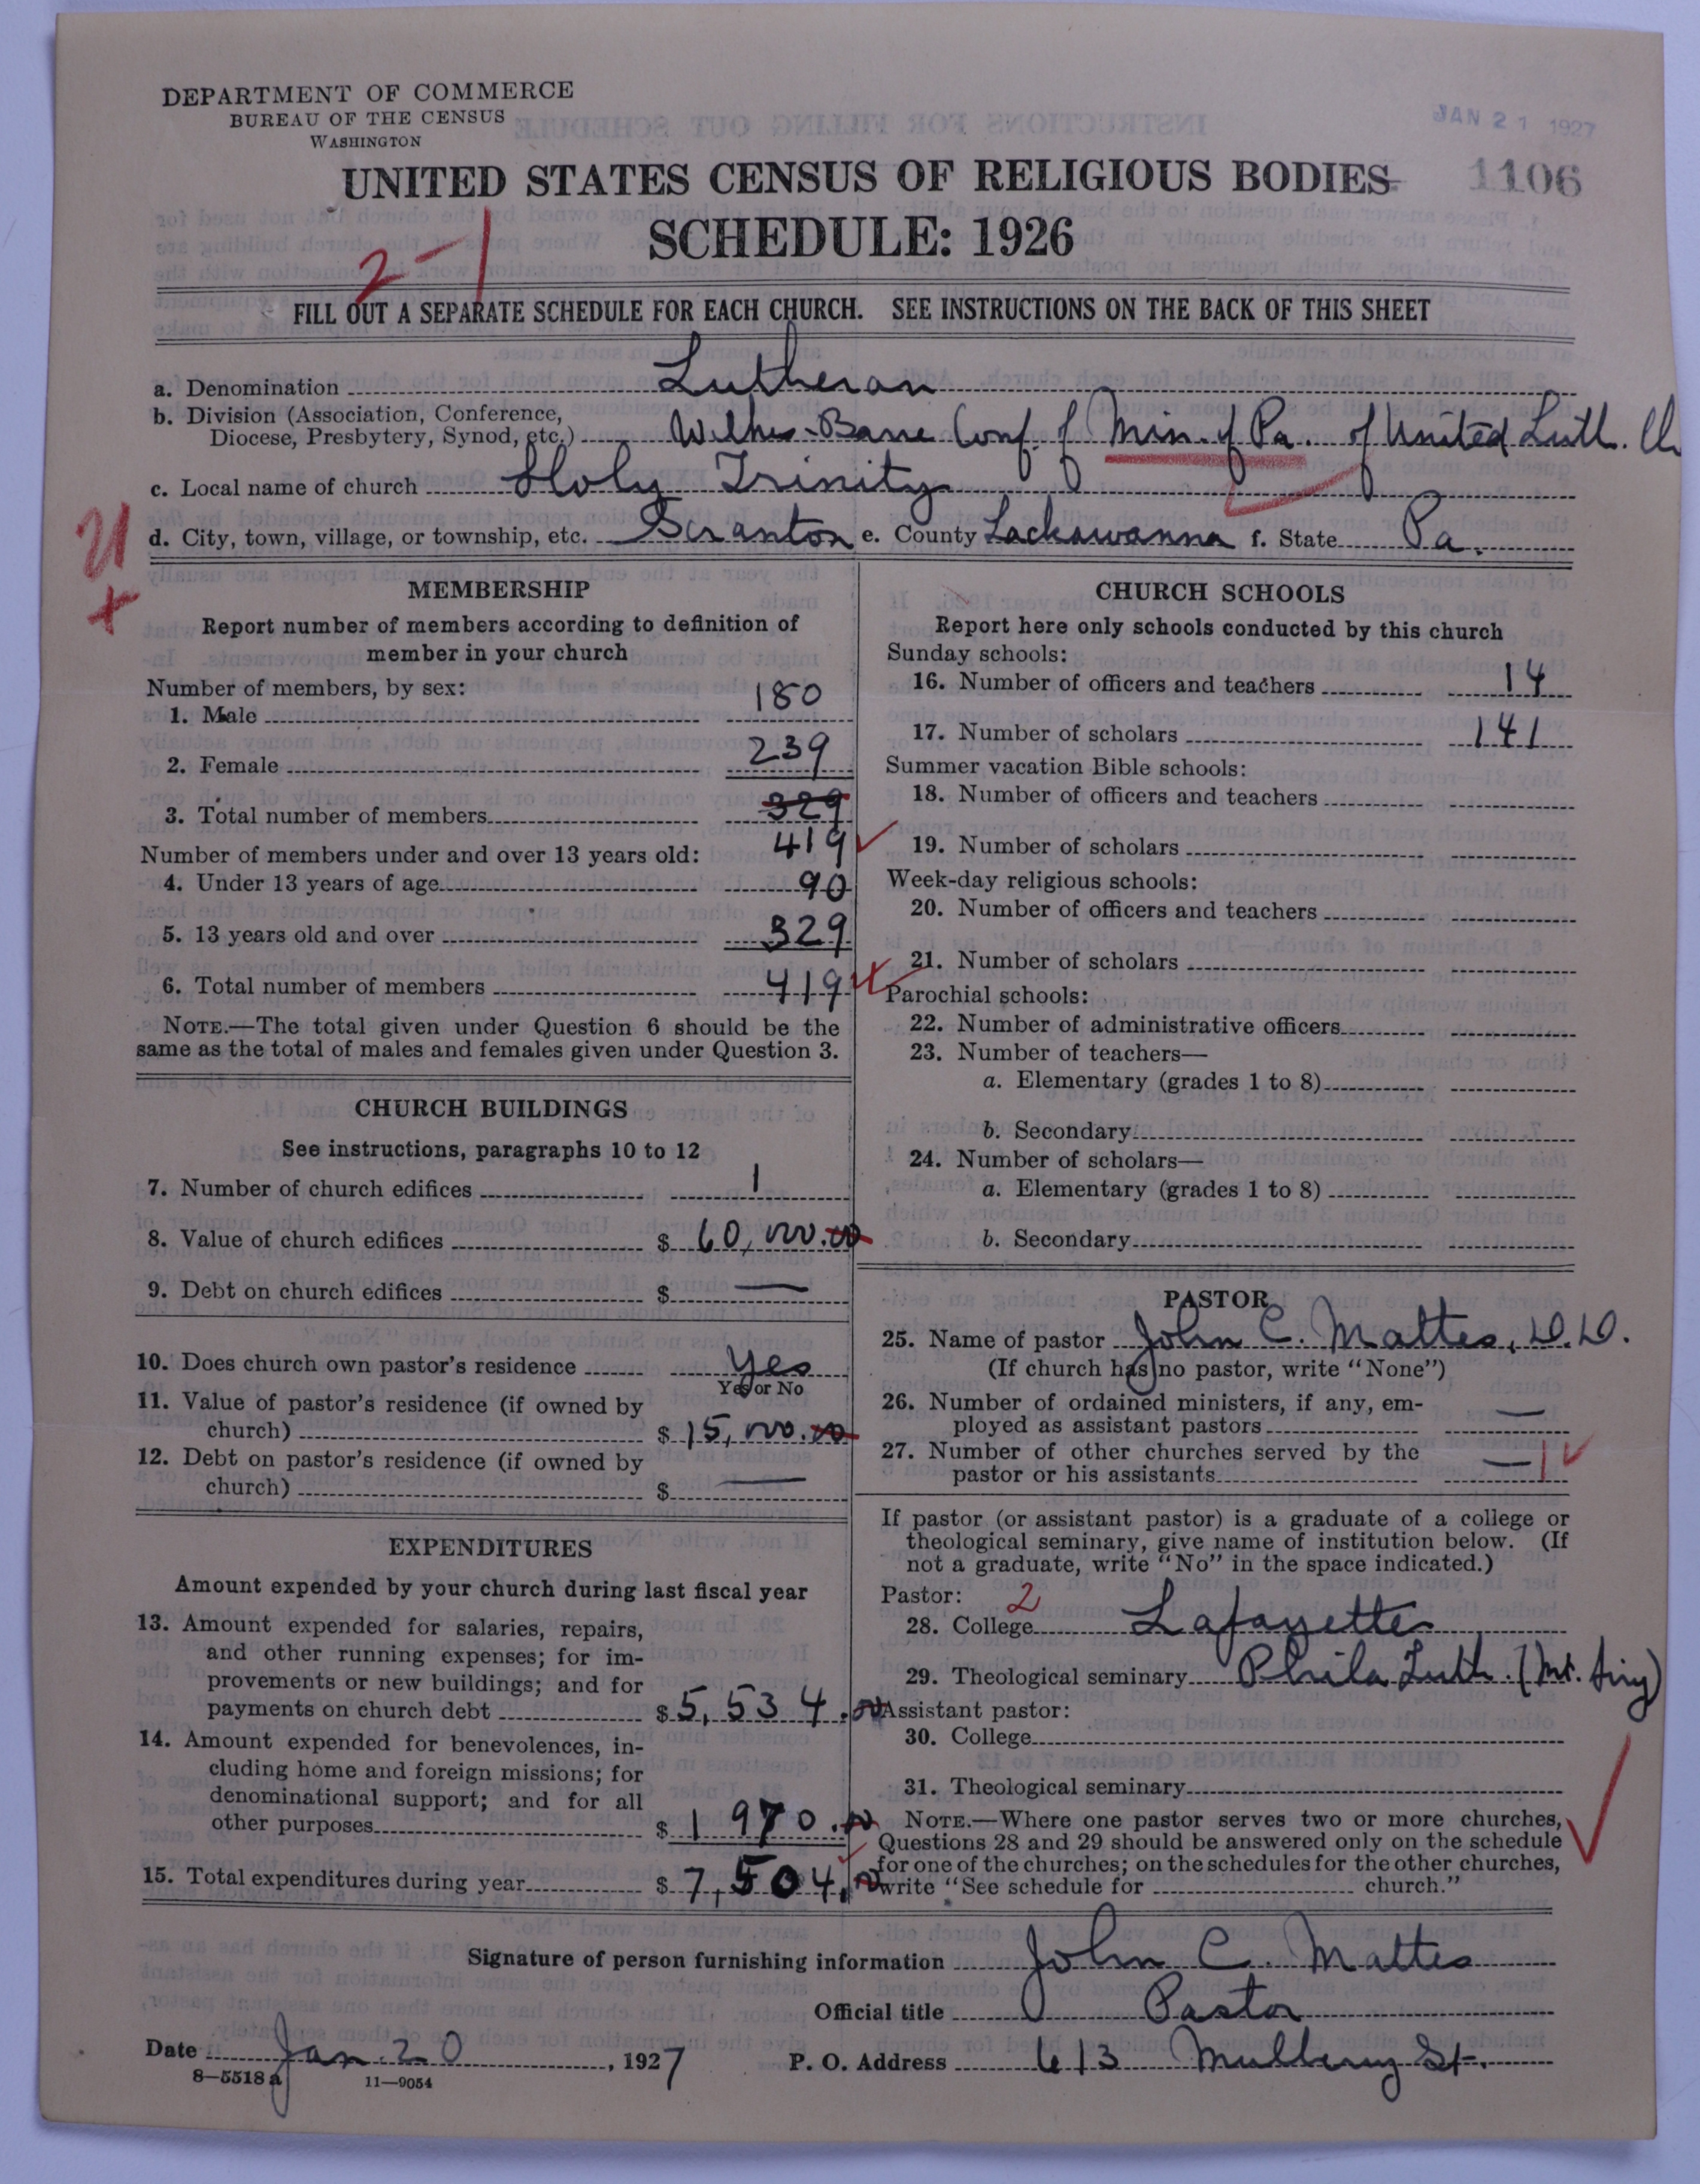 DEPARTMENT OF COMMERCE
BUREAU OF THE CENSUS
WASHINGTON
JAN 21 1927
1106
UNITED STATES CENSUS OF RELIGIOUS BODIES
SCHEDULE: 1926
2-1
FILL OUT A SEPARATE SCHEDULE FOR EACH CHURCH. SEE INSTRUCTIONS ON THE BACK OF THIS SHEET
a. Denomination Lutheran
b. Division (Association, Conference,
Diocese, Presbytery, Synod, etc.) Wilkes-Barre Conf. of Min. of Pa. of United Luth. Ch
c. Local name of church Holy Trinity
d. City, town, village, or township, etc. Scranton e. County Lackawanna f. State Pa.
MEMBERSHIP
Report number of members according to definition of
member in your church
Number of members, by sex:
1. Male 180
2. Female 239
3. Total number of members 329
419
Number of members under and over 13 years old:
4. Under 13 years of age 90
5. 13 years old and over 329
6. Total number of members 419
NOTE.—The total given under Question 6 should be the
same as the total of males and females given under Question 3.
CHURCH BUILDINGS
See instructions, paragraphs 10 to 12
7. Number of church edifices 1
8. Value of church edifices $ 60,000.00
9. Debt on church edifices $ —
10. Does church own pastor's residence Yes
Yes or No
11. Value of pastor's residence (if owned by
church) $ 15,000.00
12. Debt on pastor's residence (if owned by
church) $ —
EXPENDITURES
Amount expended by your church during last fiscal year
13. Amount expended for salaries, repairs,
and other running expenses; for im-
provements or new buildings; and for
payments on church debt $ 5,534.00
14. Amount expended for benevolences, in-
cluding home and foreign missions; for
denominational support; and for all
other purposes $ 1970.00
15. Total expenditures during year $ 7,504.00
CHURCH SCHOOLS
Report here only schools conducted by this church
Sunday schools:
16. Number of officers and teachers 14
17. Number of scholars 141
Summer vacation Bible schools:
18. Number of officers and teachers
19. Number of scholars
Week-day religious schools:
20. Number of officers and teachers
21. Number of scholars
Parochial schools:
22. Number of administrative officers
23. Number of teachers—
a. Elementary (grades 1 to 8)
b. Secondary
24. Number of scholars—
a. Elementary (grades 1 to 8)
b. Secondary
PASTOR
25. Name of pastor John C. Mattes, D.D.
(If church has no pastor, write "None")
26. Number of ordained ministers, if any, em-
ployed as assistant pastors —
27. Number of other churches served by the
pastor or his assistants — 1
If pastor (or assistant pastor) is a graduate of a college or
theological seminary, give name of institution below. (If
not a graduate, write "No" in the space indicated.)
Pastor: 2
28. College Lafayette
29. Theological seminary Phila Luth. (Mt. Airy)
Assistant pastor:
30. College
31. Theological seminary
NOTE.—Where one pastor serves two or more churches,
Questions 28 and 29 should be answered only on the schedule
for one of the churches; on the schedules for the other churches,
write "See schedule for church."
Signature of person furnishing information John C. Mattes
Official title Pastor
Date Jan. 20, 1927 P. O. Address 613 Mulberry St.
8—5518 a 11—9054